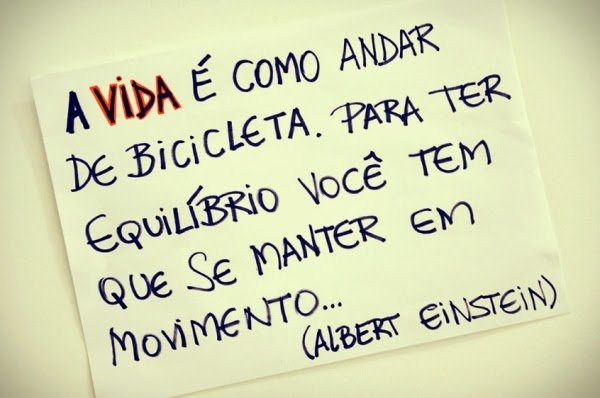 A VIDA É COMO ANDAR
DE BICICLETA. PARA TER
EQUILÍBRIO VOCÊ TEM
QUE SE MANTER EM
MOVIMENTO...
(ALBERT EINSTEIN)